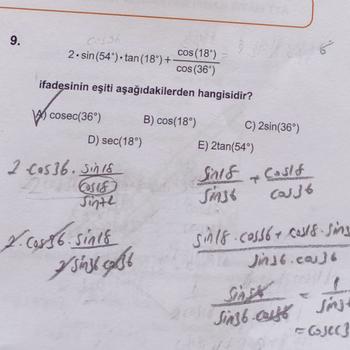 9.
2·sin(54°)·tan(18°)+ cos(18°)/cos(36°)
ifadesinin eşiti aşağıdakilerden hangisidir?
A) cosec(36°) B) cos(18°) C) 2sin(36°)
D) sec(18°) E) 2tan(54°)
2 cos36 . sin18/cos18
sin18/sin36 + cos18/cos36
2.cos36.sin18
2 sin36 cos36
sin18.cos36 + cos18.sin3
sin36.cos36
sin54/sin36.cos36 = 1/sin3
= cosec3